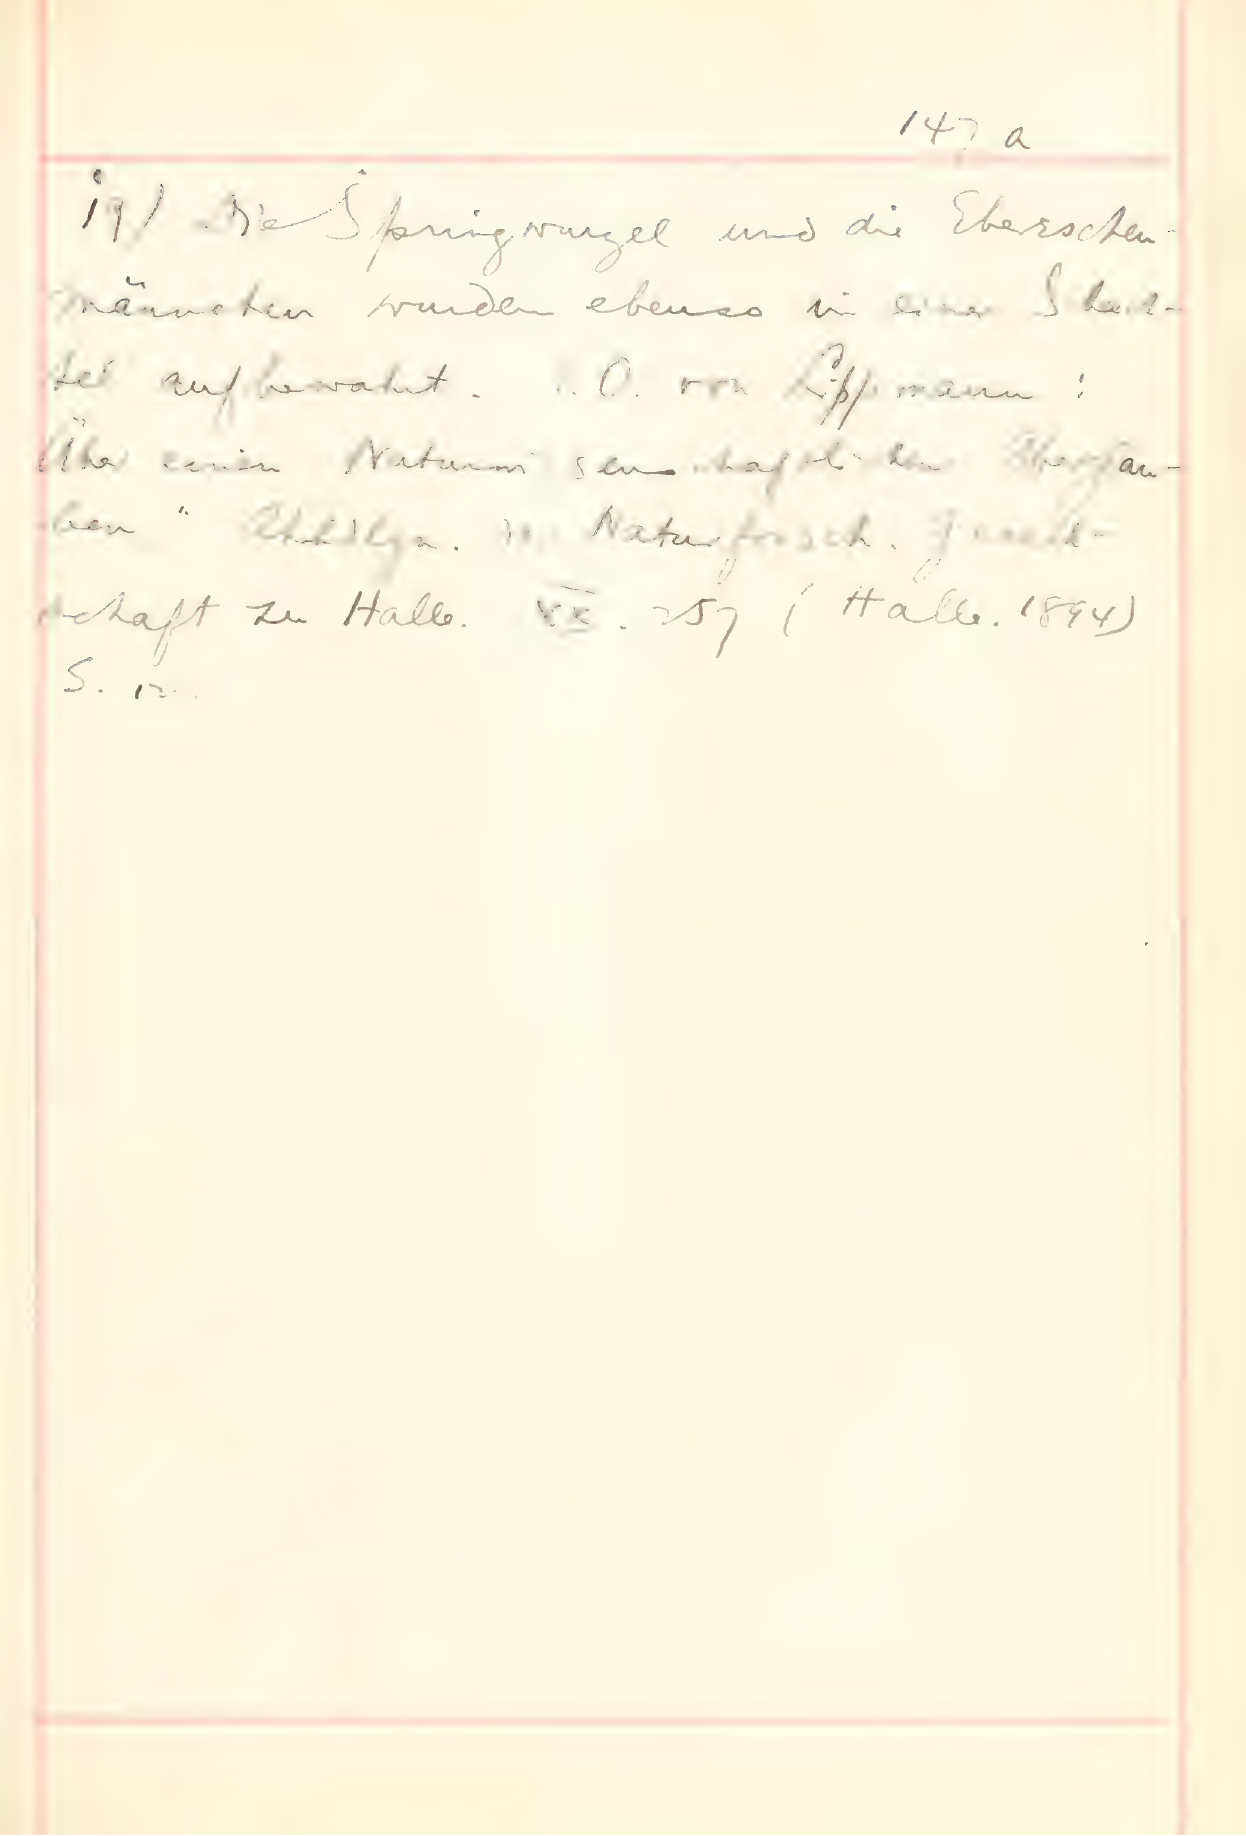 147 a
19) Die Springwurzel und die Ebereschen-
männchen wurden ebenso in einer Schach-
tel aufbewahrt. O. von Lippmann :
Über einen Naturwissenschaftlichen Aberglau-
ben" Abhdlgn. Naturforsch. Gesell-
schaft zu Halle. XX. 257 (Halle. 1894)
S.